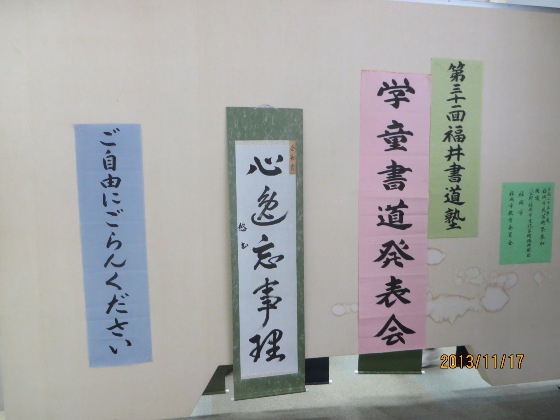 第三十二回福井書道塾
学童書道発表会
心逸忘事理
ご自由にごらんください
2013/11/17